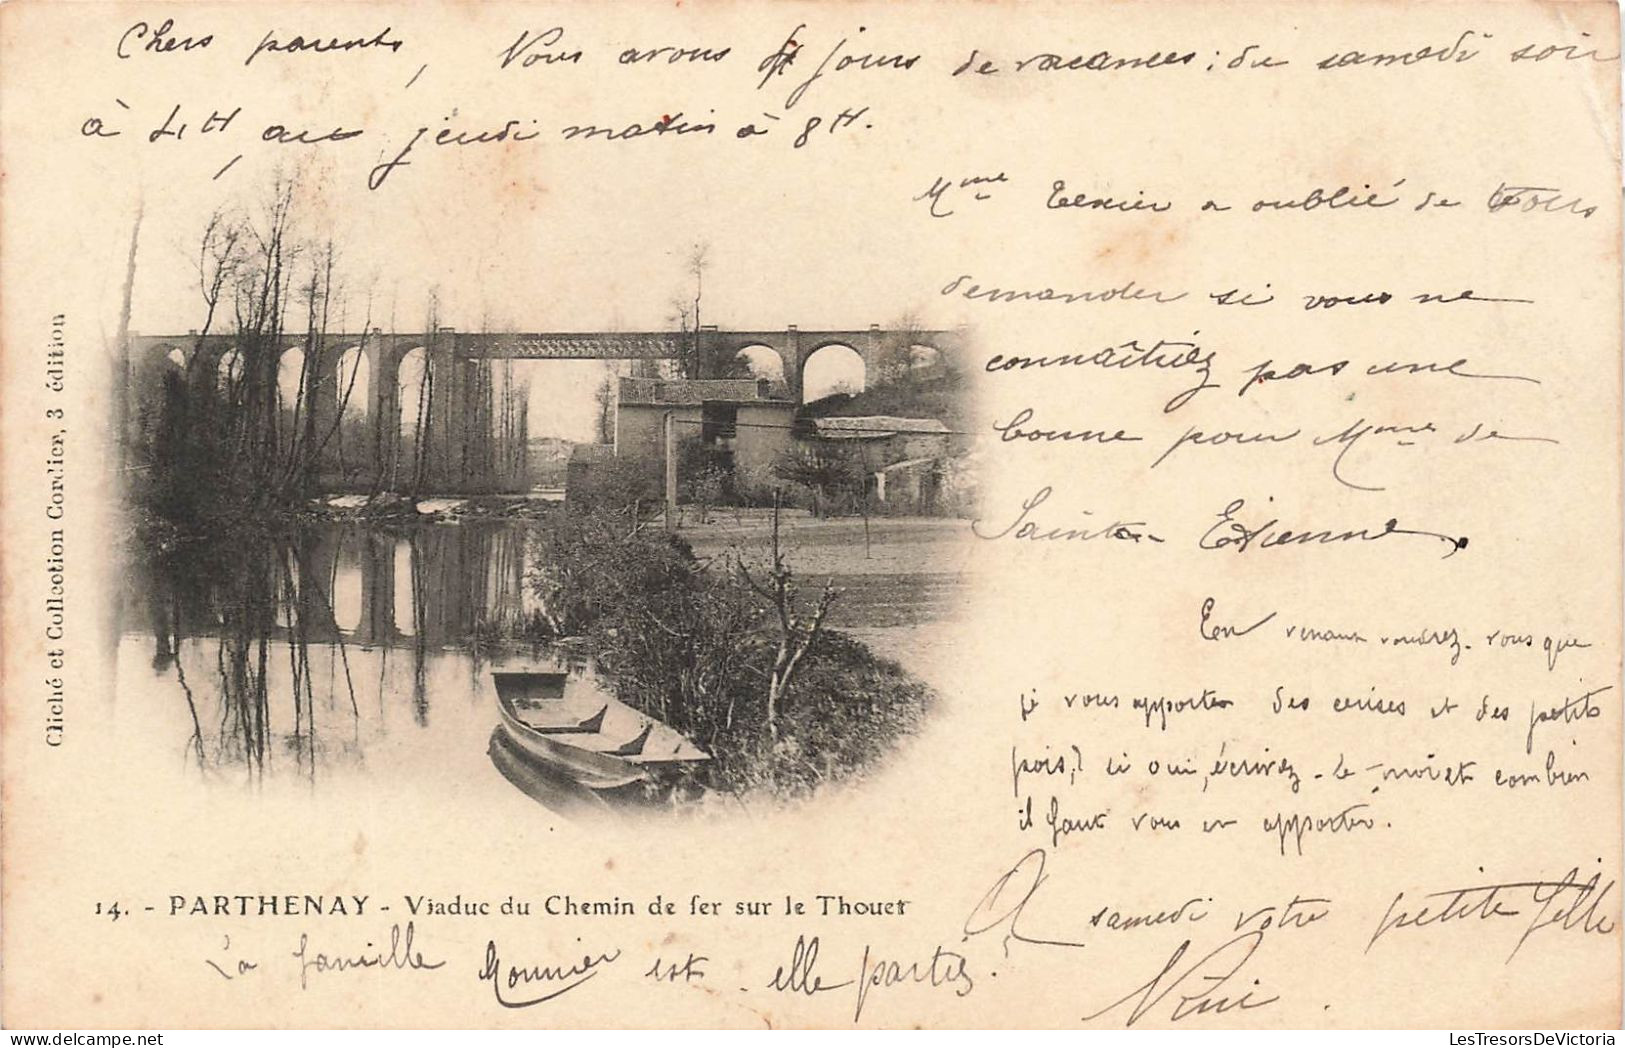 Chers parents, Nous avons 4 jours de vacances : du samedi soir
à 4H, au jeudi matin à 8H.
Mme Texier a oublié de vous
demander si vous ne
connaîtriez pas une
bonne pour Mme de
Sainte-Etienne,
En venant voudrez-vous que
je vous apporter des cerises et des petits
pois,? si oui, écrivez-le-moi et combien
il faut vous en apporter.
A samedi votre petite fille
Cliché et Collection Cordier, 3 édition
14. - PARTHENAY - Viaduc du Chemin de fer sur le Thouet
La famille Mounier est-elle partie ?
LesTresorsDeVictoria